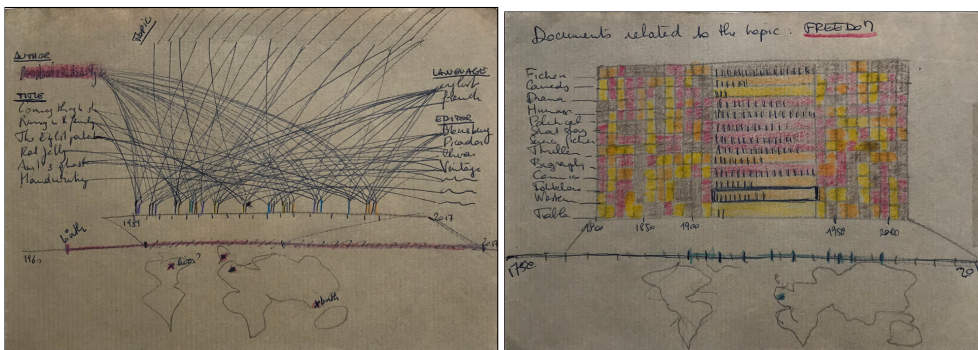 Topic
AUTHOR
TITLE
Coming through
Running in the family
The English patient
Rat Jelly
Anil's ghost
Handwriting
LANGUAGE
english
french
EDITOR
Bloomsbury
Picador
Vintage
2017
birth
lives?
birth
Documents related to the topic: FREEDOM
Fiction
Comedy
Drama
Human
Political
Short story
Science fiction
Thriller
Biography
Comics
Folklore
Western
Fable
1800 1850 1900 1950 2000
1750 20